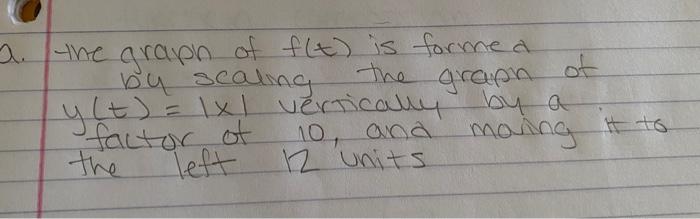 a. the graph of f(t) is formed
by scaling the graph of
y(t) = |x| vertically by a
factor of 10, and moving it to
the left 12 units